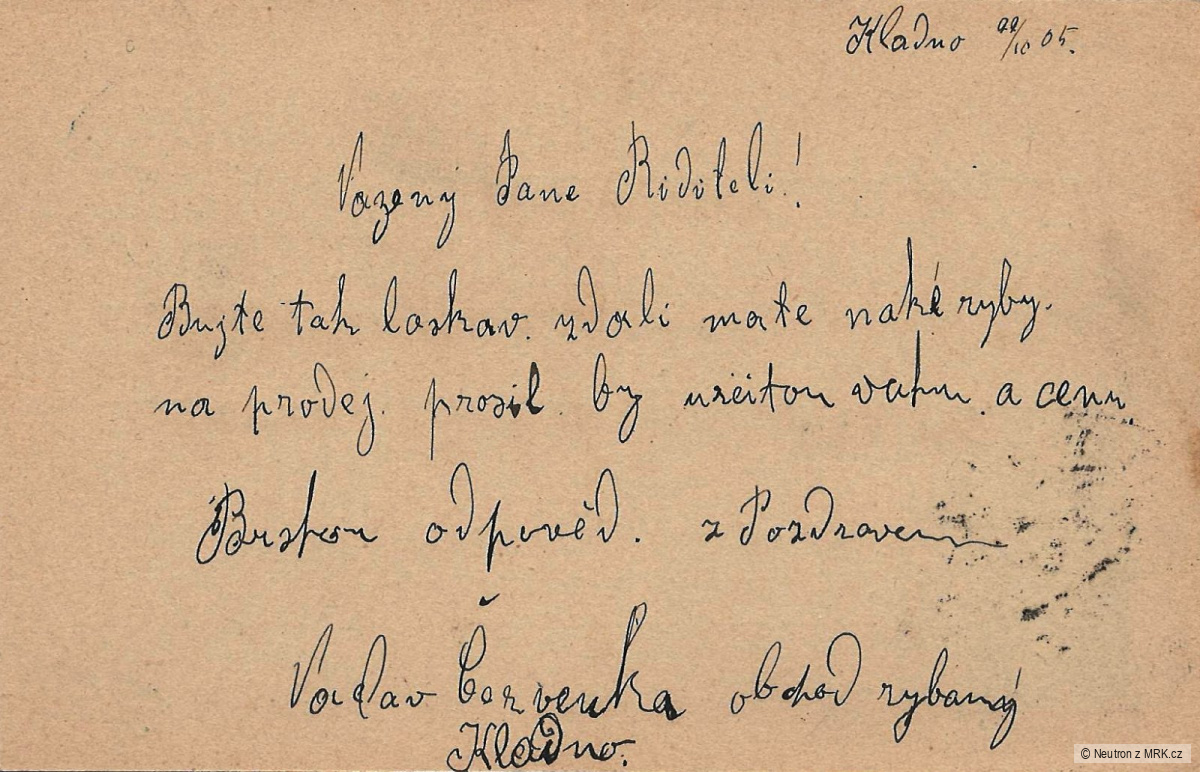 Kladno 22/10 05.
Vazený Pane Riditeli!
Bujte tak laskav. zdali mate naké ryby.
na prodej. prosil by určitou vahu. a cenu
odpověd. z Pozdravem
Vaclav Červenka obchod rybamý
Kladno.
© Neutron z MRK.cz